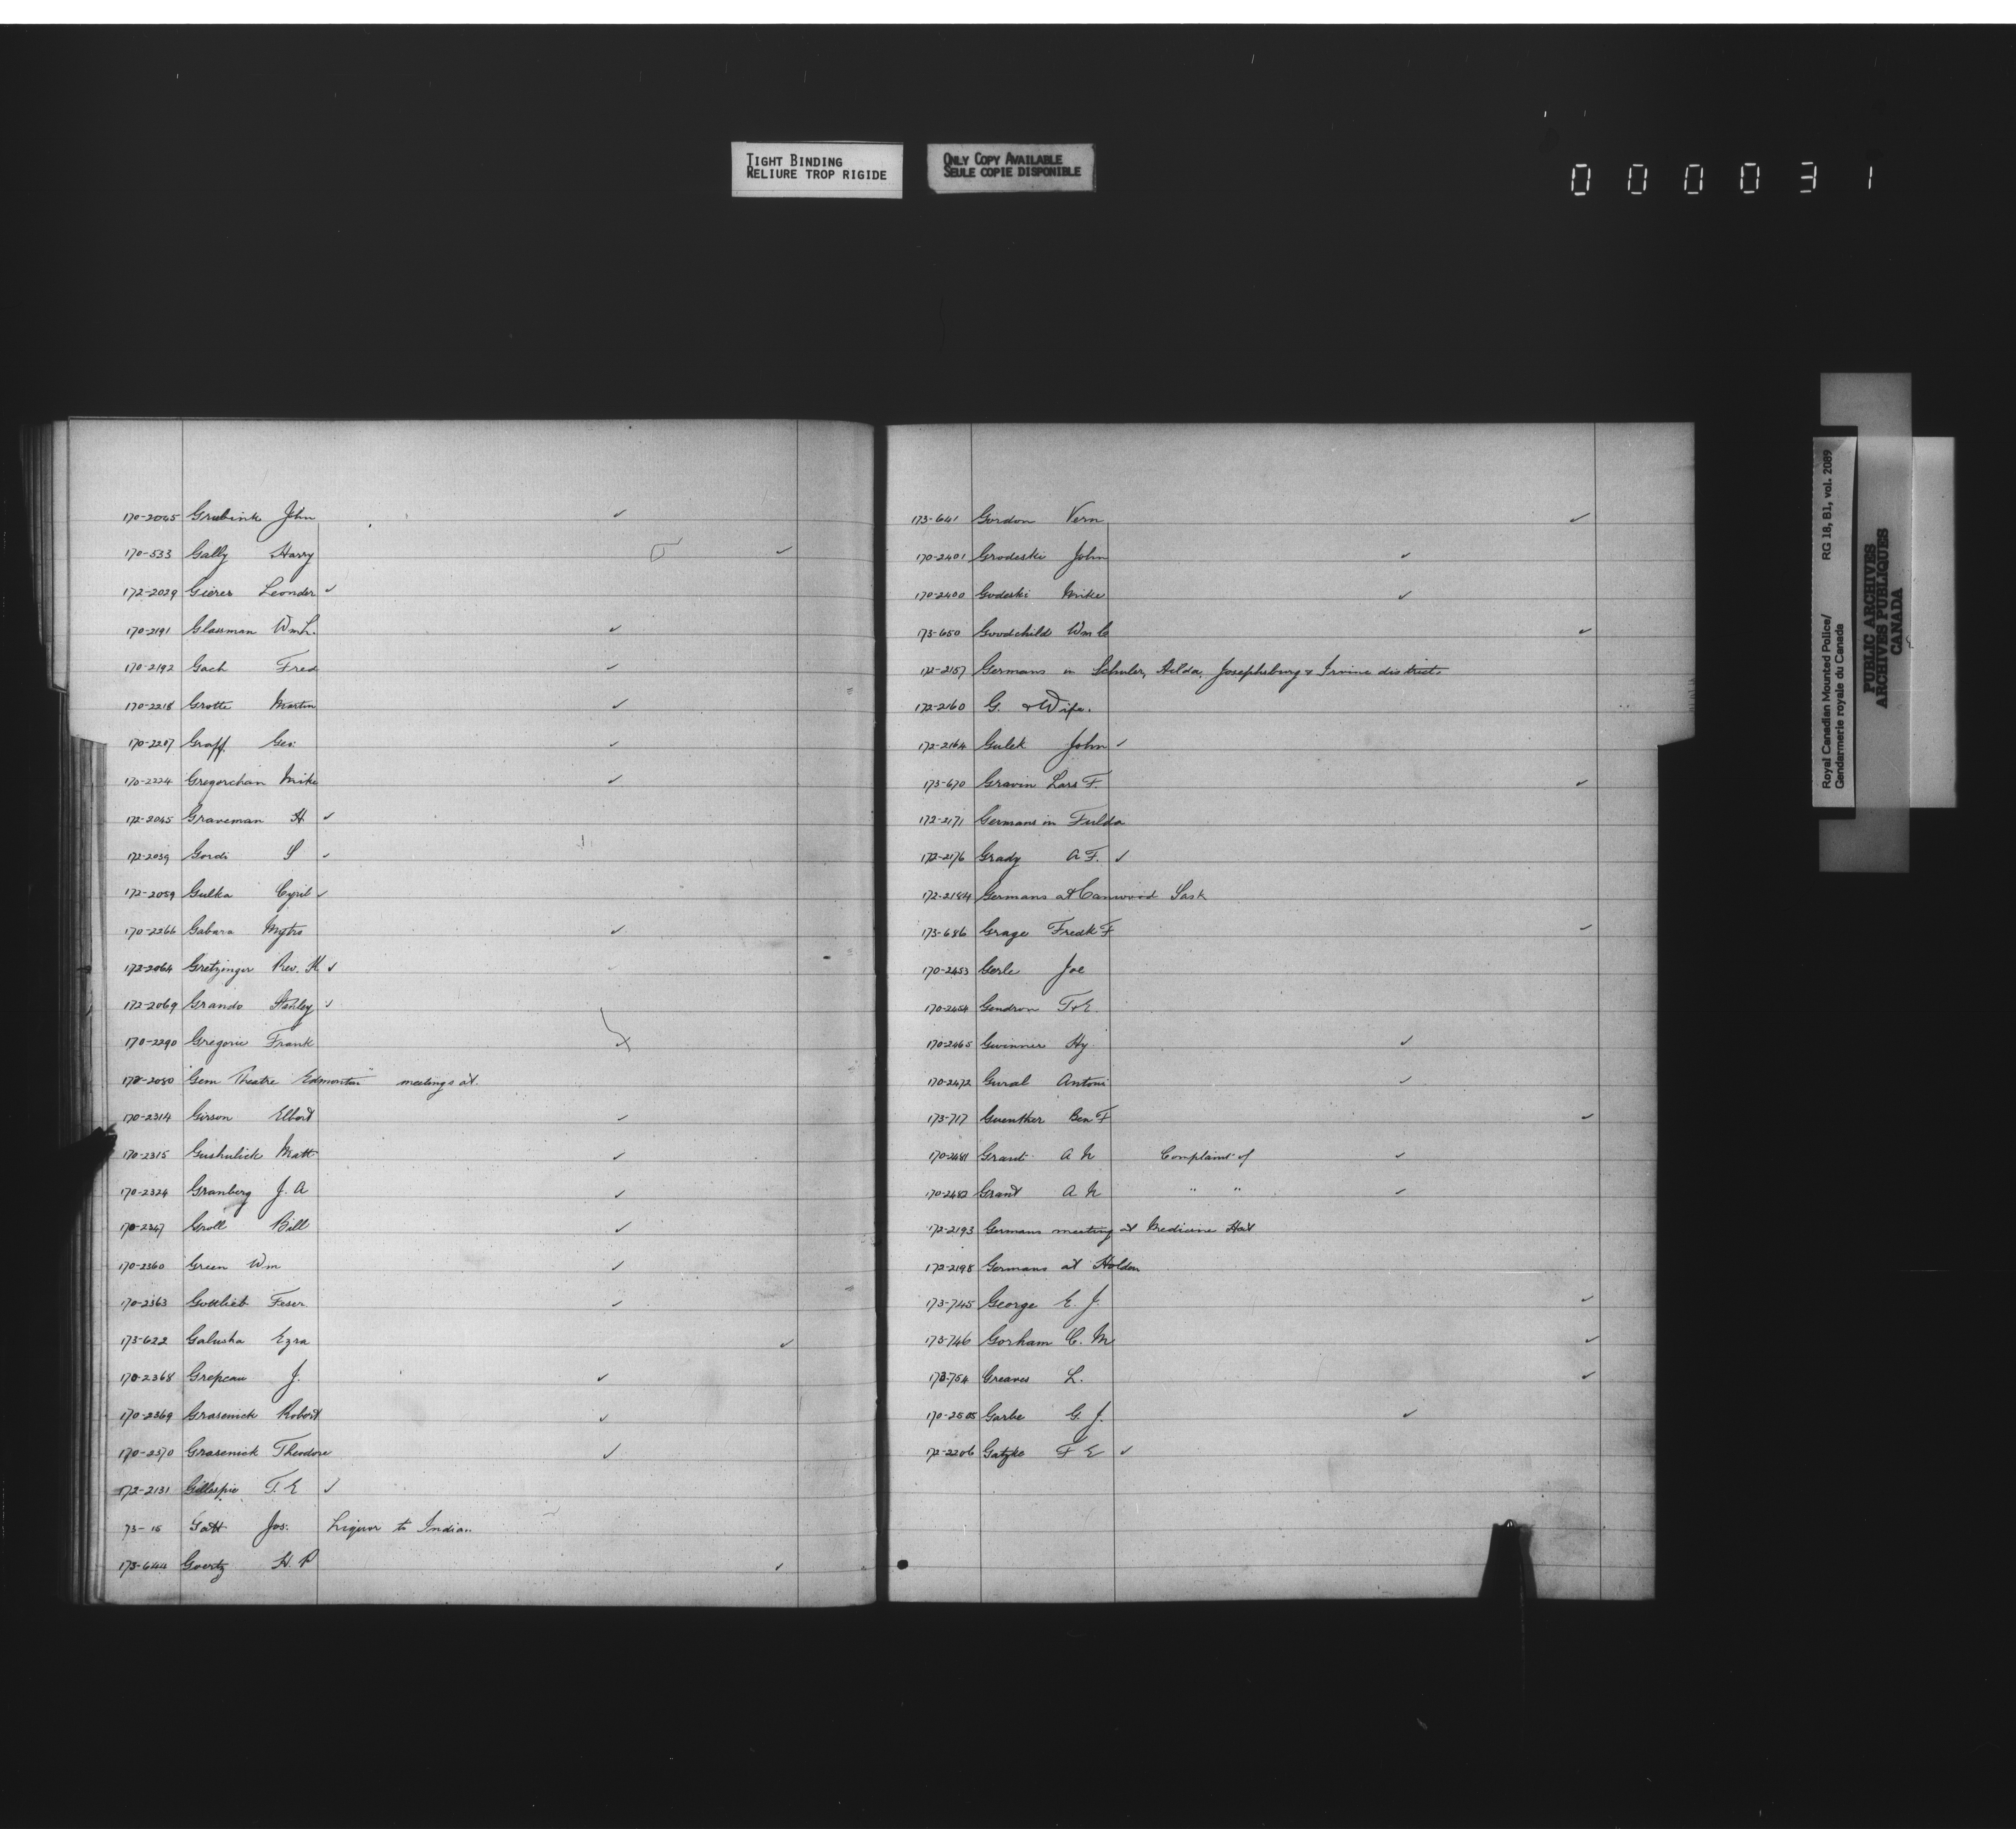 TIGHT BINDING
RELIURE TROP RIGIDE
ONLY COPY AVAILABLE
SEULE COPIE DISPONIBLE
000031
170-2045 Grubink John ✓
170-533 Gally Harry ✓
172-2029 Gieres Leonder ✓
170-2191 Glassman Wm L. ✓
170-2192 Gach Fred ✓
170-2218 Grotte Martin ✓
170-2207 Graff Geo: ✓
170-2224 Gregorchan Mike ✓
172-2045 Graveman H ✓
172-2039 Gordi S ✓
172-2059 Gulka Cyril ✓
170-2266 Gabara Mytro ✓
172-2064 Gretzinger Rev. H ✓
172-2069 Grando Stanley ✓
170-2290 Gregorie Frank
172-2080 "Gem Theatre Edmonton" meetings at.
170-2314 Girson Elbert ✓
170-2315 Gushulick Matt ✓
170-2324 Granberg J. A ✓
170-2347 Groll Bill ✓
170-2360 Green Wm ✓
170-2363 Gottlieb Feser ✓
173-622 Galusha Ezra ✓
170-2368 Grepeau J. ✓
170-2369 Grasenick Robert ✓
170-2370 Grasenick Theodore ✓
172-2131 Gillespie T. E ✓
73-15 Gott Jos. Liquor to Indian
173-644 Goertz H. P ✓
173-641 Gordon Vern ✓
170-2401 Grodeski John ✓
170-2400 Godeski Mike ✓
173-650 Goodchild Wm C ✓
172-2157 Germans in Schuler, Hilda, Josephsburg & Irvine districts
172-2160 G. & Wife.
172-2164 Gulek John ✓
173-670 Gravin Lars F. ✓
172-2171 Germans in Fulda
172-2176 Grady A F. ✓
172-2184 Germans at Canwood Sask
173-686 Grage Fredk F ✓
170-2453 Gerle Joe
170-2454 Gendron T. E.
170-2465 Gwinner Hy ✓
170-2472 Gural Antoni ✓
173-717 Guenther Ben F ✓
170-2481 Grant A N Complaint of ✓
170-2482 Grant A N " " ✓
172-2193 Germans meeting at Medicine Hat
172-2198 Germans at Holden
173-745 George E. J. ✓
173-746 Gorham C. M ✓
173-754 Greaves L. ✓
170-2505 Garbe G. J. ✓
172-2206 Gatzke F E ✓
Royal Canadian Mounted Police/ RG 18, B1, vol. 2089
Gendarmerie royale du Canada
PUBLIC ARCHIVES
ARCHIVES PUBLIQUES
CANADA